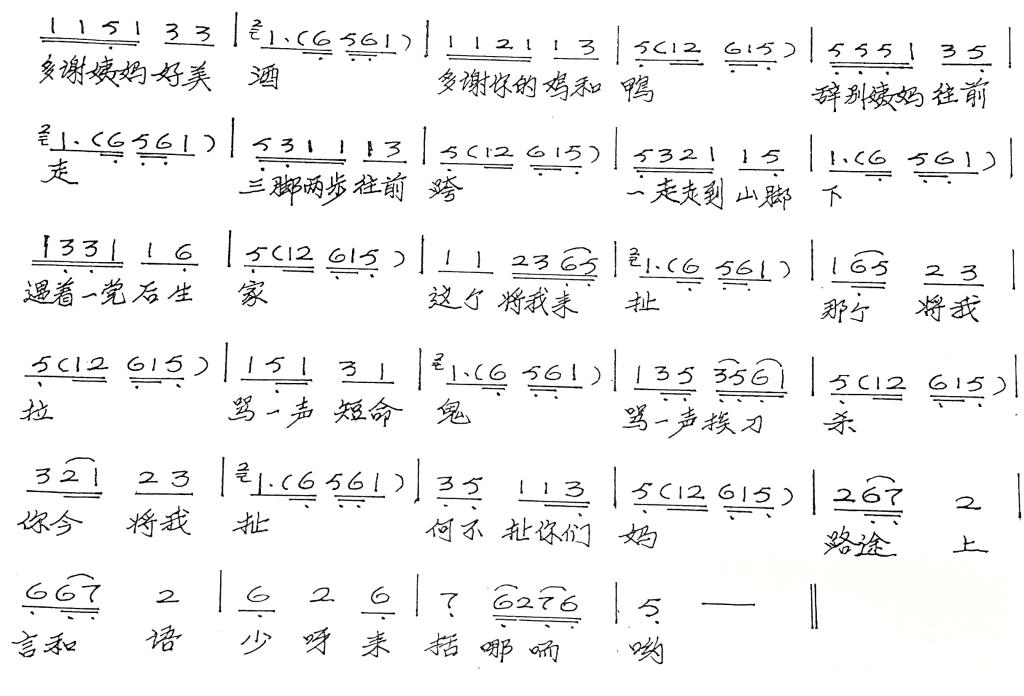 1 1 5 1 3 3 | 2 1·(6 5 6 1) | 1 1 2 1 1 3 | 5(1 2 6 1 5) | 5 5 5 1 3 5 |
多谢姨妈好美 酒 多谢你的鸡和 鸭 辞别姨妈往前
2 1·(6 5 6 1) | 5 3 1 1 1 3 | 5(1 2 6 1 5) | 5 3 2 1 1 5 | 1·(6 5 6 1) |
走 三脚两步往前 跨 一走走到山脚 下
1 3 3 1 1 6 | 5(1 2 6 1 5) | 1 1 2 3 6 5 | 2 1·(6 5 6 1) | 1 6 5 2 3 |
遇着一党后生 家 这个将我来 扯 那个 将我
5(1 2 6 1 5) | 1 5 1 3 1 | 2 1·(6 5 6 1) | 1 3 5 3 5 6 1 | 5(1 2 6 1 5) |
拉 骂一声短命 鬼 骂一声挨刀 杀
3 2 1 2 3 | 2 1·(6 5 6 1) | 3 5 1 1 3 | 5(1 2 6 1 5) | 2 6 7 2 |
你今 将我 扯 何不扯你们 妈 路途 上
6 6 7 2 | 6 2 6 | 7 6 2 7 6 | 5 — ‖
言和 语 少呀来 括哪嗬 哟